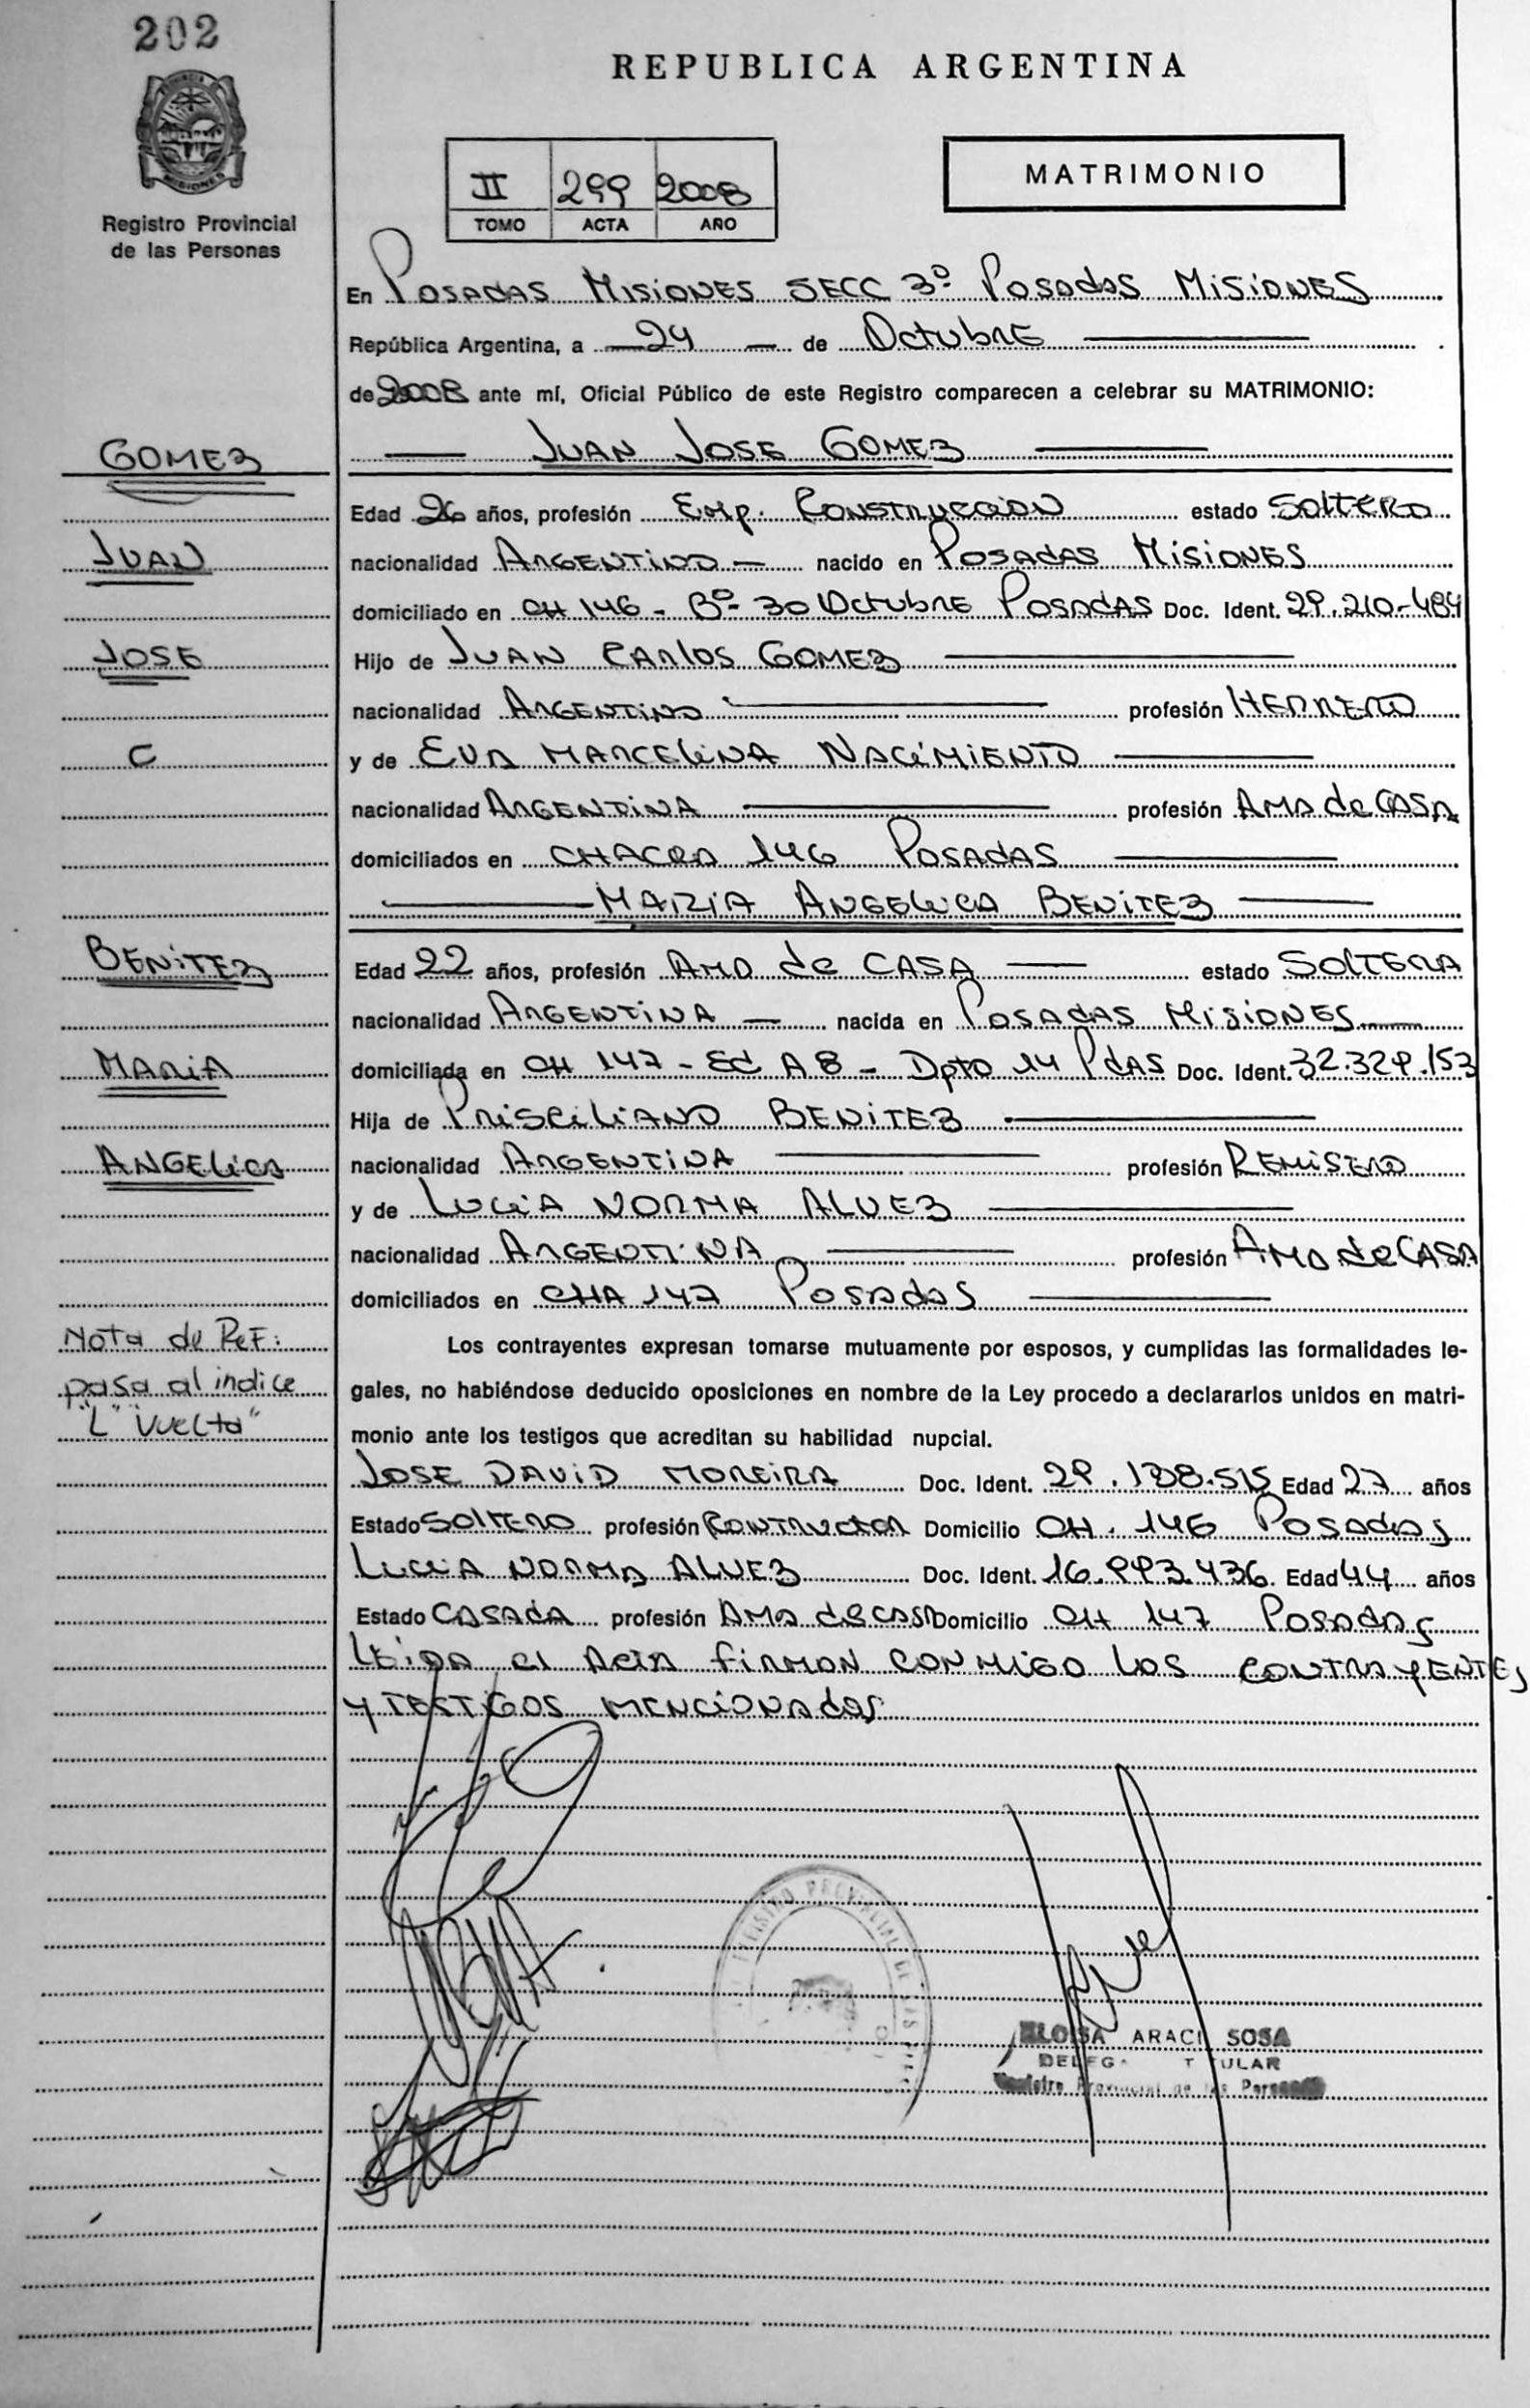 202
REPUBLICA ARGENTINA
MISIONES
Registro Provincial
de las Personas
II 299 2008
TOMO ACTA AÑO
MATRIMONIO
En POSADAS MISIONES SECC 3º Posadas MISIONES
República Argentina, a 24 de Octubre
de 2008 ante mí, Oficial Público de este Registro comparecen a celebrar su MATRIMONIO:
GOMEZ
JUAN JOSE GOMEZ
Edad 26 años, profesión Emp. CONSTRUCCION estado SOLTERO
JUAN
nacionalidad ARGENTINO nacido en POSADAS MISIONES
domiciliado en CH 146 - Bº 30 Octubre POSADAS Doc. Ident. 29.210.484
JOSE
Hijo de JUAN CARLOS GOMEZ
nacionalidad ARGENTINO profesión HERRERO
C
y de EVA MARCELINA NACIMIENTO
nacionalidad ARGENTINA profesión AMA de CASA
domiciliados en CHACRA 146 POSADAS
MARIA ANGELICA BENITEZ
BENITEZ
Edad 22 años, profesión AMA de CASA estado SOLTERA
nacionalidad ARGENTINA nacida en POSADAS MISIONES
MARIA
domiciliada en CH 147 - Ed A 8 - Dpto 14 PdAS Doc. Ident. 32.329.153
Hija de PRISCILIANO BENITEZ
ANGELICA
nacionalidad ARGENTINA profesión REMISERO
y de LUCIA NORMA ALVEZ
nacionalidad ARGENTINA profesión AMA de CASA
domiciliados en CHA 147 Posadas
Nota de Ref:
pasa al indice
"L" Vuelta"
Los contrayentes expresan tomarse mutuamente por esposos, y cumplidas las formalidades le-
gales, no habiéndose deducido oposiciones en nombre de la Ley procedo a declararlos unidos en matri-
monio ante los testigos que acreditan su habilidad nupcial.
JOSE DAVID MOREIRA Doc. Ident. 29.188.515 Edad 27 años
Estado SOLTERO profesión CONTRUCTOR Domicilio CH. 146 Posadas
LUCIA NORMA ALVEZ Doc. Ident. 16.993.436 Edad 44 años
Estado CASADA profesión AMA de CASA Domicilio CH 147 Posadas
LEIDA el ACTA FIRMAN CONMIGO LOS CONTRAYENTES
Y TESTIGOS MENCIONADOS
REGISTRO PROVINCIAL DE LAS
ELOISA ARACI SOSA
Registro Provincial de las Personas